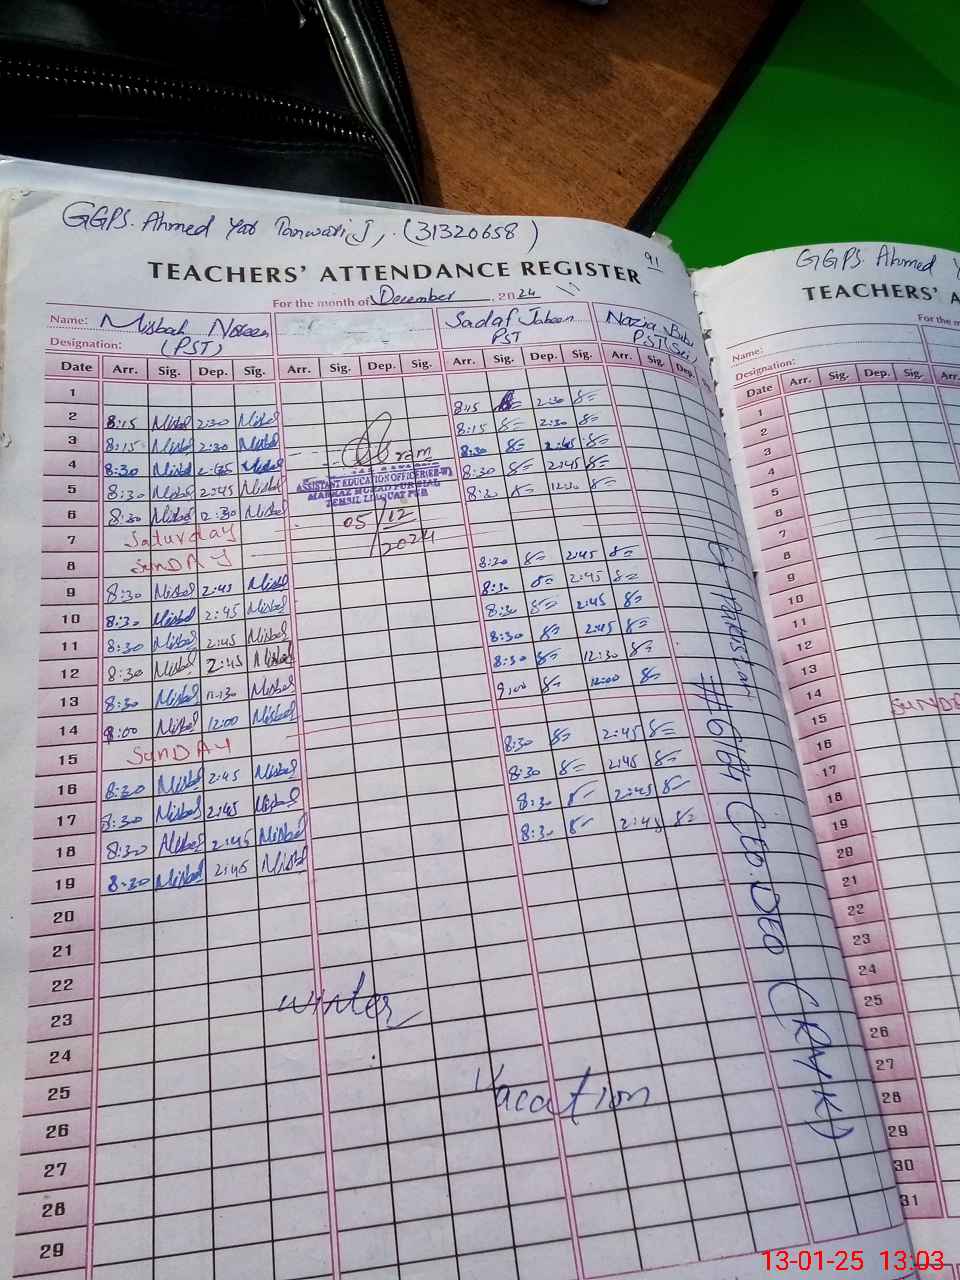 GGPS. Ahmed Yar Panwari J, (31320658)
91
TEACHERS' ATTENDANCE REGISTER
For the month of December, 2024
Name: Misbah Noreen Sadaf Jabeen Nazia Bibi
Designation: (PST) PST PST
Date Arr. Sig. Dep. Sig. Arr. Sig. Dep. Sig. Arr. Sig. Dep. Sig. Arr. Sig. Dep.
1
2 8:15 Misbah 2:30 Misbah 8:15 2:30
3 8:15 Misbah 2:30 Misbah 8:15 2:30
4 8:30 Misbah 2:45 Misbah 8:30 2:45
5 8:30 Misbah 2:45 Misbah 8:30 2:45
6 8:30 Misbah 12:30 Misbah 8:30 12:30
ASSISTANT EDUCATION OFFICER (EE-W)
TEHSIL LIAQUAT PUR
05/12/2024
7 Saturday
8 SUNDAY
9 8:30 Misbah 2:45 Misbah 8:30 2:45
10 8:30 Misbah 2:45 Misbah 8:30 2:45
11 8:30 Misbah 2:45 Misbah 8:30 2:45
12 8:30 Misbah 2:45 Misbah 8:30 2:45
13 8:30 Misbah 12:30 Misbah 8:30 12:30
14 9:00 Misbah 12:00 Misbah 9:00 12:00
15 SUNDAY
16 8:30 Misbah 2:45 Misbah 8:30 2:45
17 8:30 Misbah 2:45 Misbah 8:30 2:45
18 8:30 Misbah 2:45 Misbah 8:30 2:45
19 8:30 Misbah 2:45 Misbah 8:30 2:45
20
21
22
23
24
25
26
27
28
29
winter
Vacation
# 6164 CEO. DEO (RYK)
GGPS. Ahmed
TEACHERS' A
For the m
Name:
Designation:
Date Arr. Sig. Dep. Sig. Arr.
1
2
3
4
5
6
7
8
9
10
11
12
13
14
15 SUNDA
16
17
18
19
20
21
22
23
24
25
26
27
28
29
30
31
13-01-25 13:03